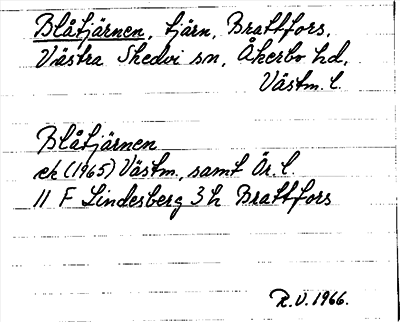 Blåtjärnen, tjärn, Brattfors,
Västra Skedvi sn, Åkerbo hd,
Västm. l.
Blåtjärnen
ek (1965) Västm., samt Ör. l.
11 F Lindesberg 3 h Brattfors
R.V. 1966.